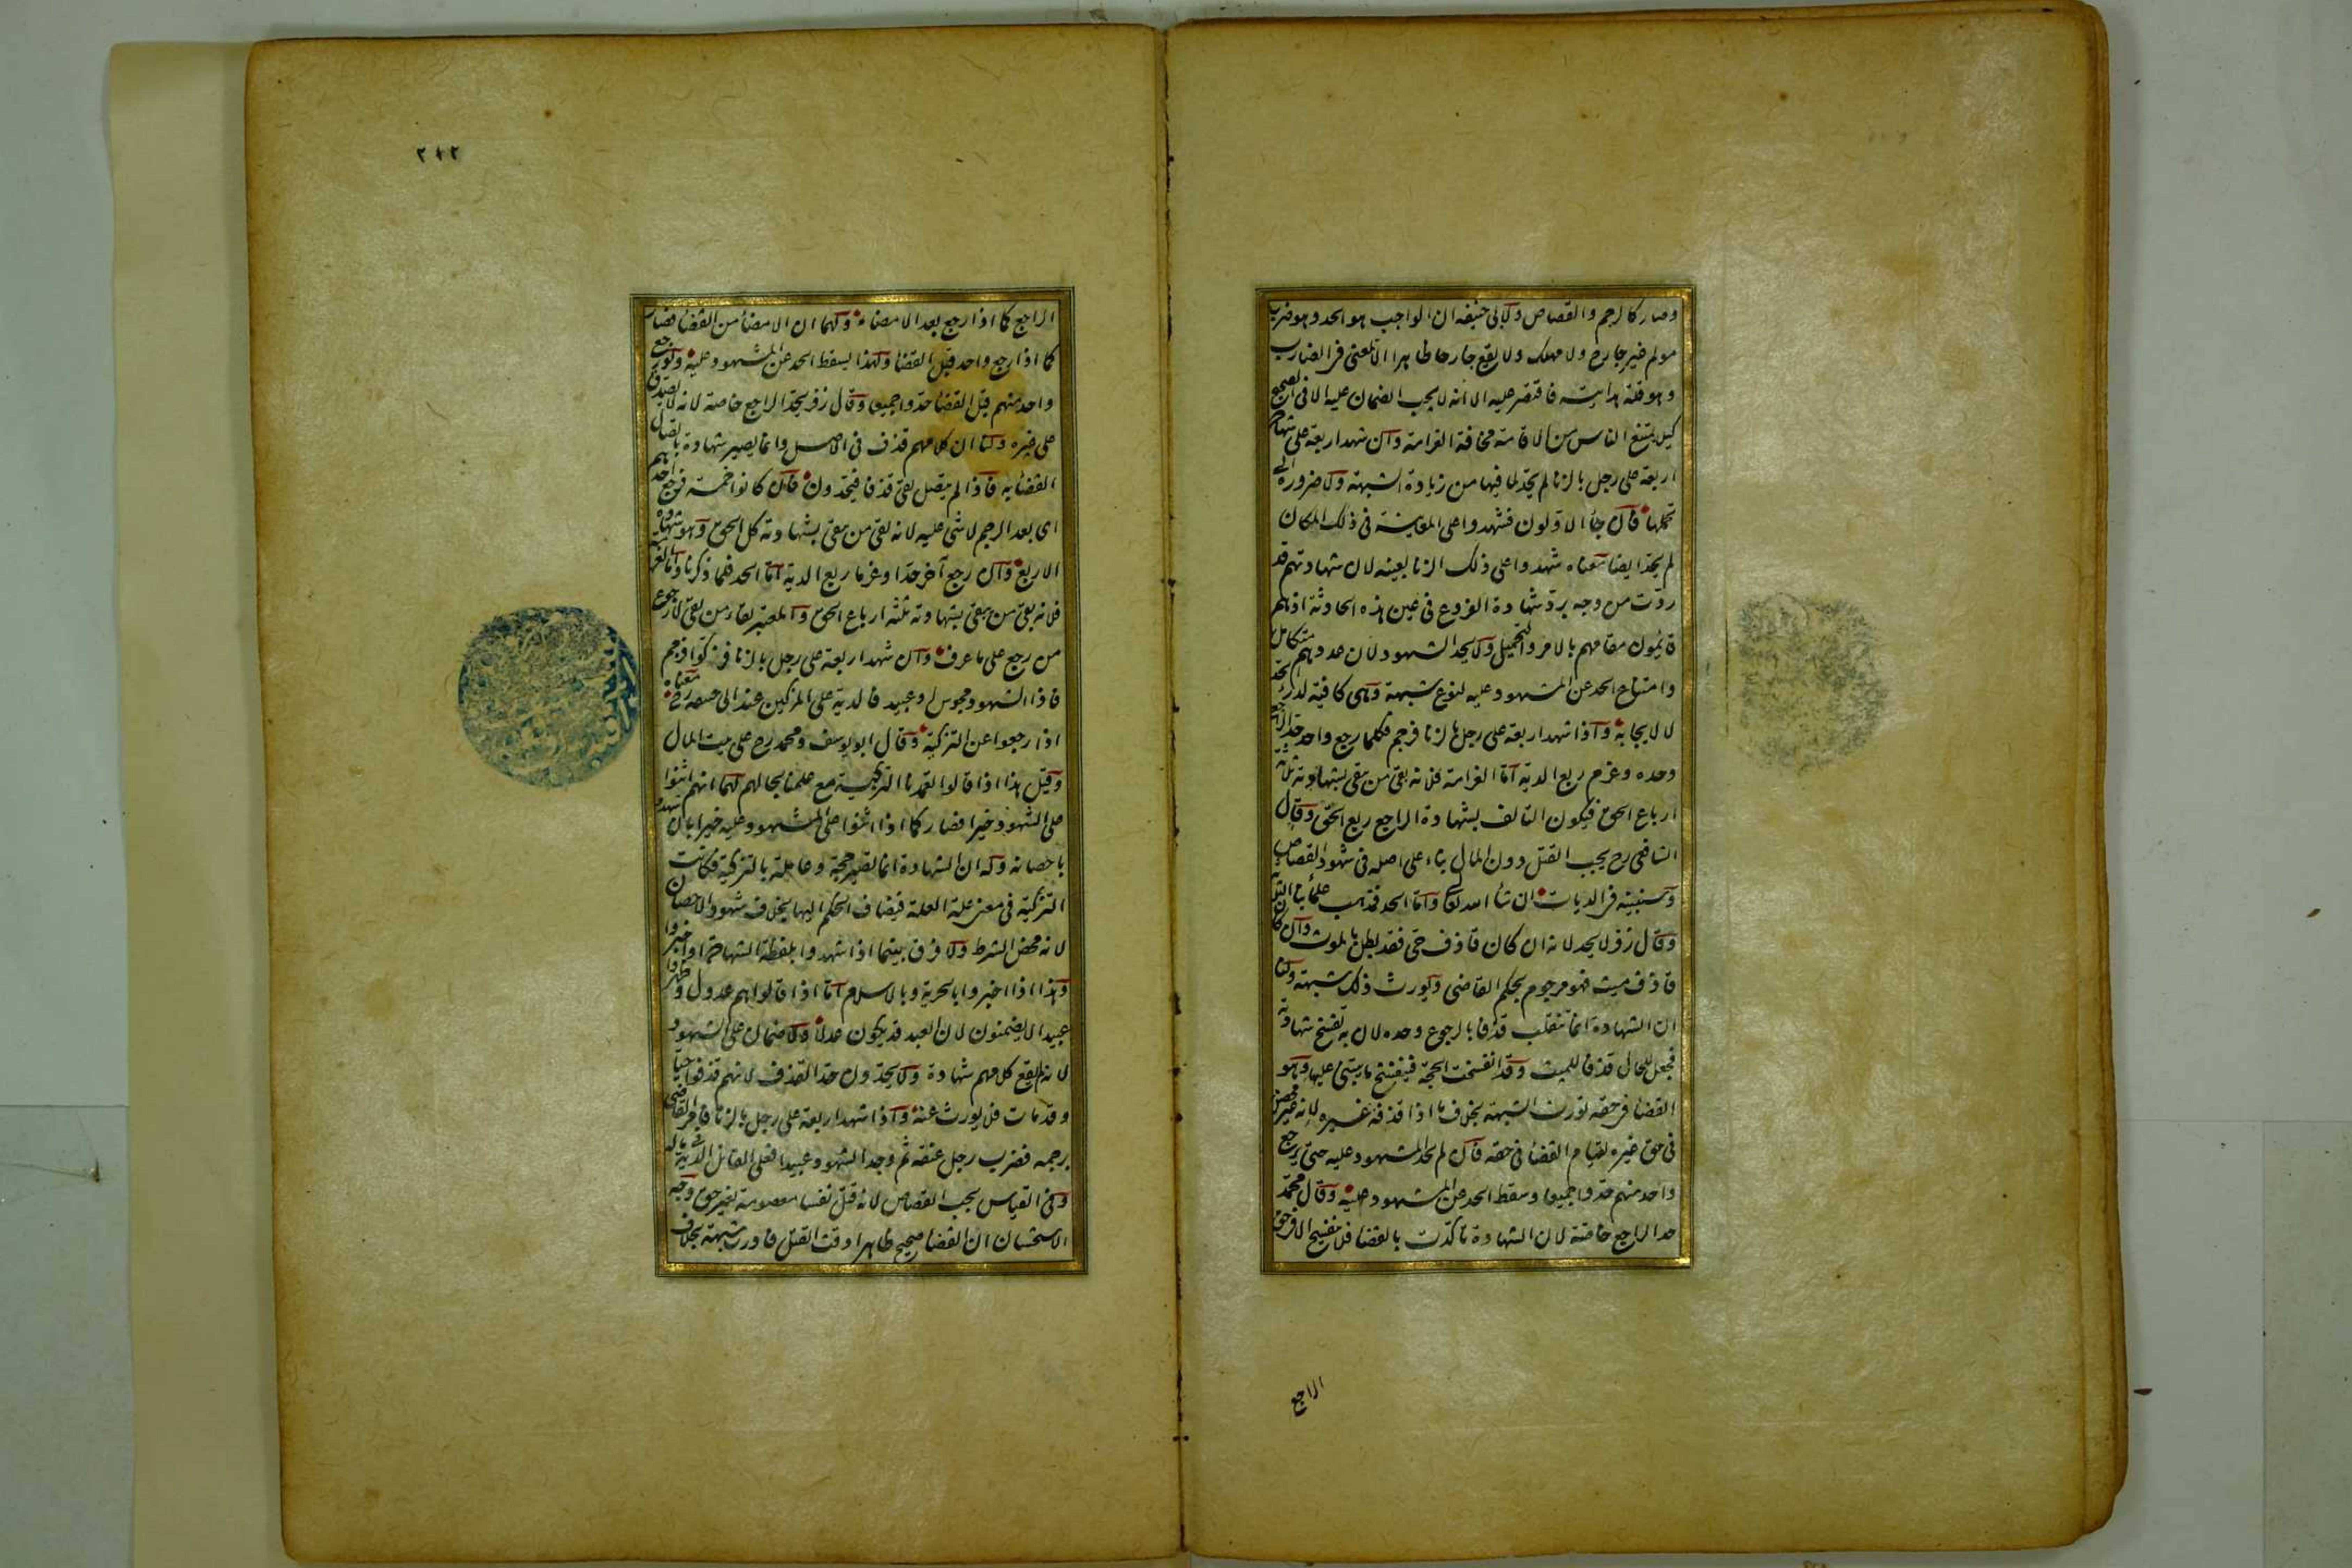 وصار كالرجم والقصاص ولابى حنيفه ان الواجب هو الحد وهو ضرب
مولم غير جارح ولا مهلك ولا يقع جارحا ظاهرا الا لمعنى فى الضارب
وهو قلة هدايته فاقتصر عليه الا انه لا يجب الضمان عليه الا فى الصحيح
كيلا يمتنع الناس من الاقامة مخافة الغرامة وان شهد اربعة على شهادة
اربعة على رجل بالزنا لم يحد لما فيها من زيادة الشبهة ولا ضرورة الى
تحملها فان جاء الاولون فشهدوا على المعاينة فى ذلك المكان
لم يحد ايضا معناه شهدوا على ذلك الزنا بعينه لان شهادتهم قد
ردت من وجه برد شهادة الفروع فى عين هذه الحادثة اذ هم
قايمون مقامهم بالامر والتحميل ولا يحد الشهود لان عددهم متكامل
وامتناع الحد عن المشهود عليه لنوع شبهة وهى كافية لدرء الحد
لا لايجابه واذا شهد اربعة على رجل بالزنا فرجم فكلما رجع واحد حد الراجع
وحده وغرم ربع الدية اما الغرامة فلانه بقى من يبقى بشهادته ثلاثة
ارباع الحق فيكون التالف بشهادة الراجع ربع الحق وقال
الشافعى رح يجب القتل دون المال بناء على اصله فى شهود القصاص
وسنبينه فى الديات ان شاء الله تعالى واما الحد فمذهب علمائنا الثلثة
وقال زفر لا يحد لانه ان كان قاذف حى فقد بطل بالموت وان كان
قاذف ميت فهو مرجوم بحكم القاضى ويورث ذلك شبهة ولنا
ان الشهادة انما تنقلب قذفا بالرجوع وحده لان به تفسخ شهادته
فجعل للحال قذفا للميت وقد انفسخت الحجة فينفسخ ما يبتنى عليها وهو
القضا فى حقه تورث الشبهة بخلاف ما اذا قذفه غيره لانه غير محصن
فى حق غيره لقيام القضا فى حقه فان لم يحد المشهود عليه حتى يرجع
واحد منهم حدوا جميعا وسقط الحد عن المشهود عليه وقال محمد
حد الراجع خاصة لان الشهادة تاكدت بالقضا فلا ينفسخ الا فى حق
الراجع
٢١٢
الراجع كما اذا رجع بعد الامضاء ولهما ان الامضا من القضا فصار
كما اذا رجع واحد قبل القضا ولهذا يسقط الحد عن المشهود عليه ولو رجع
واحد منهم قبل القضا حدوا جميعا وقال زفر يحد الراجع خاصة لانه لا يصدق
على غيره ولنا ان كلامهم قذف فى الاصل وانما يصير شهادة باتصال
القضا به فاذا لم يتصل بقى قذفا فيحدون فان كانوا خمسة فرجع احدهم
اى بعد الرجم لا شى عليه لانه بقى من يبقى بشهادته كل الحق وهو شهادة
الاربع وان رجع آخر حدا وغرما ربع الدية اما الحد فلما ذكرنا واما الغرامة
فلانه بقى من يبقى بشهادته ثلثة ارباع الحق والمعتبر بقاء من بقى لا رجوع
من رجع على ما عرف وان شهد اربعة على رجل بالزنا فزكوا فرجم
فاذا الشهود مجوس او عبيد فالدية على المزكين عند ابى حنيفه رح معناه
اذا رجعوا عن التزكية وقال ابو يوسف ومحمد رح على بيت المال
وقيل هذا اذا قالوا تعمدنا التزكية مع علمنا بحالهم لهما انهم اثنوا
على الشهود خيرا فصار كما اذا اثنوا على المشهود عليه خيرا بان شهدوا
باحصانه وله ان الشهادة انما تصير حجة وعاملة بالتزكية فكانت
التزكية فى معنى علة العلة فيضاف الحكم اليها بخلاف شهود الاحصان
لانه محض الشرط ولا فرق بينما اذا شهدوا بلفظة الشهادة او اخبروا
وهذا اذا اخبروا بالحرية وبالاسلام اما اذا قالوا هم عدول وظهروا
عبيدا لا يضمنون لان العبد قد يكون عدلا ولا ضمان على الشهود
لانه لم يقع كلامهم شهادة ولا يحدون حد القذف لانهم قذفوا حيا
وقد مات فلا يورث عنه واذا شهد اربعة على رجل بالزنا فامر القاضى
برجمه فضرب رجل عنقه ثم وجد الشهود عبيدا فعلى القاتل الدية فى ماله
وفى القياس يجب القصاص لانه قتل نفسا معصومة بغير حق وجه
الاستحسان ان القضا صحيح ظاهرا وقت القتل فاورث شبهة بخلاف